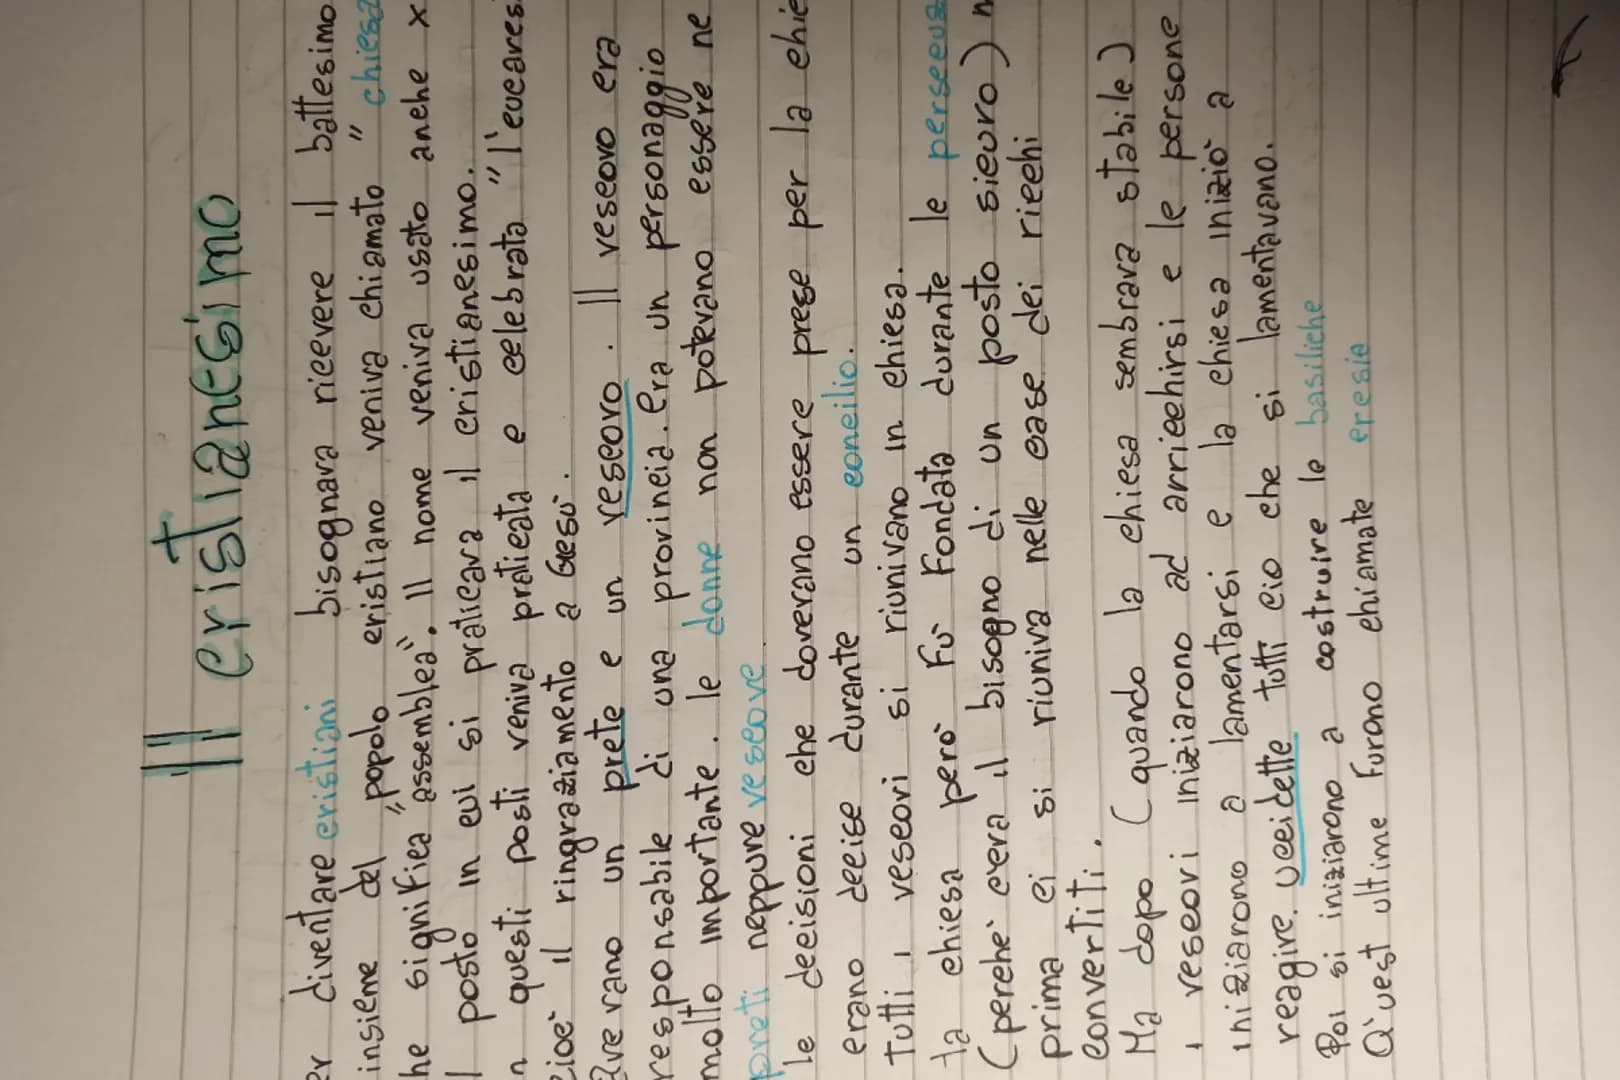 Il cristianesimo
er diventare cristiani bisognava ricevere il battesimo
insieme del "popolo cristiano veniva chiamato "chiesa
he significa "assemblea". Il nome veniva usato anche x
l posto in cui si praticava il cristianesimo.
n questi posti veniva praticata e celebrata "l'eucares
cioè il ringraziamento a Gesù.
ve rano un prete e un vescovo. Il vescovo era
responsabile di una provincia. Era un personaggio
molto importante. le donne non potevano essere ne
preti neppure vescove.
le decisioni che doverano essere prese per la chie
erano decise durante un concilio.
tutti i vescovi si riunivano in chiesa.
la chiesa però Fù Fondata durante le persecuz
(perchè c'era il bisogno di un posto sicuro) n
prima ci si riuniva nelle case dei ricchi
convertiti.
Ma dopo (quando la chiesa sembrava stabile)
i vescovi iniziarono ad arricchirsi e le persone
iniziarono a lamentarsi e la chiesa iniziò a
reagire. uccidette tutti cio che si lamentavano.
Poi si iniziarono a costruire le basiliche
Q'uest ultime Furono chiamate eresia